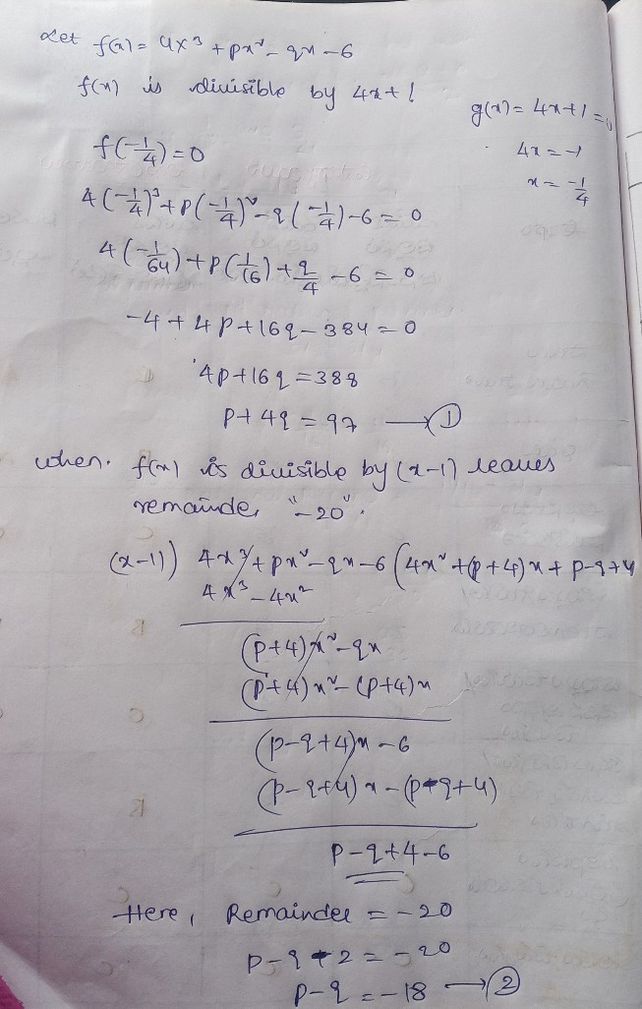 Let f(x) = 4x³ + px² - qx - 6
f(x) is divisible by 4x+1
g(x) = 4x+1 = 0
4x = -1
x = -1/4
f(-1/4) = 0
4(-1/4)³ + p(-1/4)² - q(-1/4) - 6 = 0
4(-1/64) + p(1/16) + q/4 - 6 = 0
-4 + 4p + 16q - 384 = 0
4p + 16q = 388
p + 4q = 97 → ①
when. f(x) is divisible by (x-1) leaves
remainder "-20".
(x-1)) 4x³ + px² - qx - 6 (4x² + (p+4)x + p-q+4
4x³ - 4x²
(p+4)x² - qx
(p+4)x² - (p+4)x
(p-q+4)x - 6
(p-q+4)x - (p-q+4)
p-q+4-6
Here, Remainder = -20
p-q-2 = -20
p-q = -18 → ②